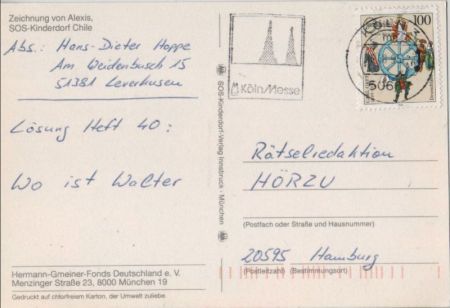 Zeichnung von Alexis,
SOS-Kinderdorf Chile
Abs.: Hans-Dieter Hoppe
Am Weidenbusch 15
51381 Leverkusen
Lösung Heft 40:
Wo ist Walter
Hermann-Gmeiner-Fonds Deutschland e. V.
Menzinger Straße 23, 8000 München 19
Gedruckt auf chlorfreiem Karton, der Umwelt zuliebe.
SOS-Kinderdorf-Verlag Innsbruck · München
Köln/Messe
KÖLN
506
100
Rätselredaktion
HÖRZU
(Postfach oder Straße und Hausnummer)
20595 Hamburg
(Postleitzahl) (Bestimmungsort)